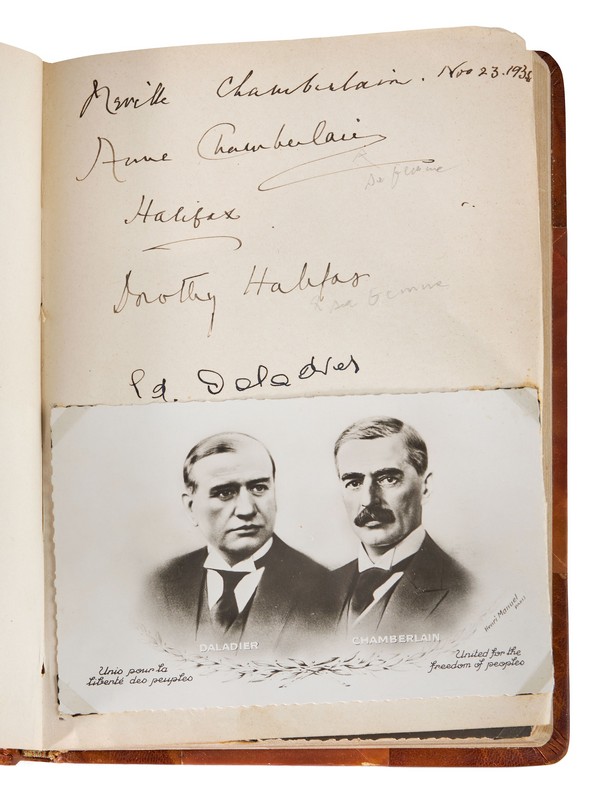 Neville Chamberlain. Nov 23. 1938
Anne Chamberlain
sa femme
Halifax
Dorothy Halifax
sa femme
Ed. Daladier
DALADIER
CHAMBERLAIN
Henri Manuel
PARIS
Unis pour la
liberté des peuples
United for the
freedom of peoples